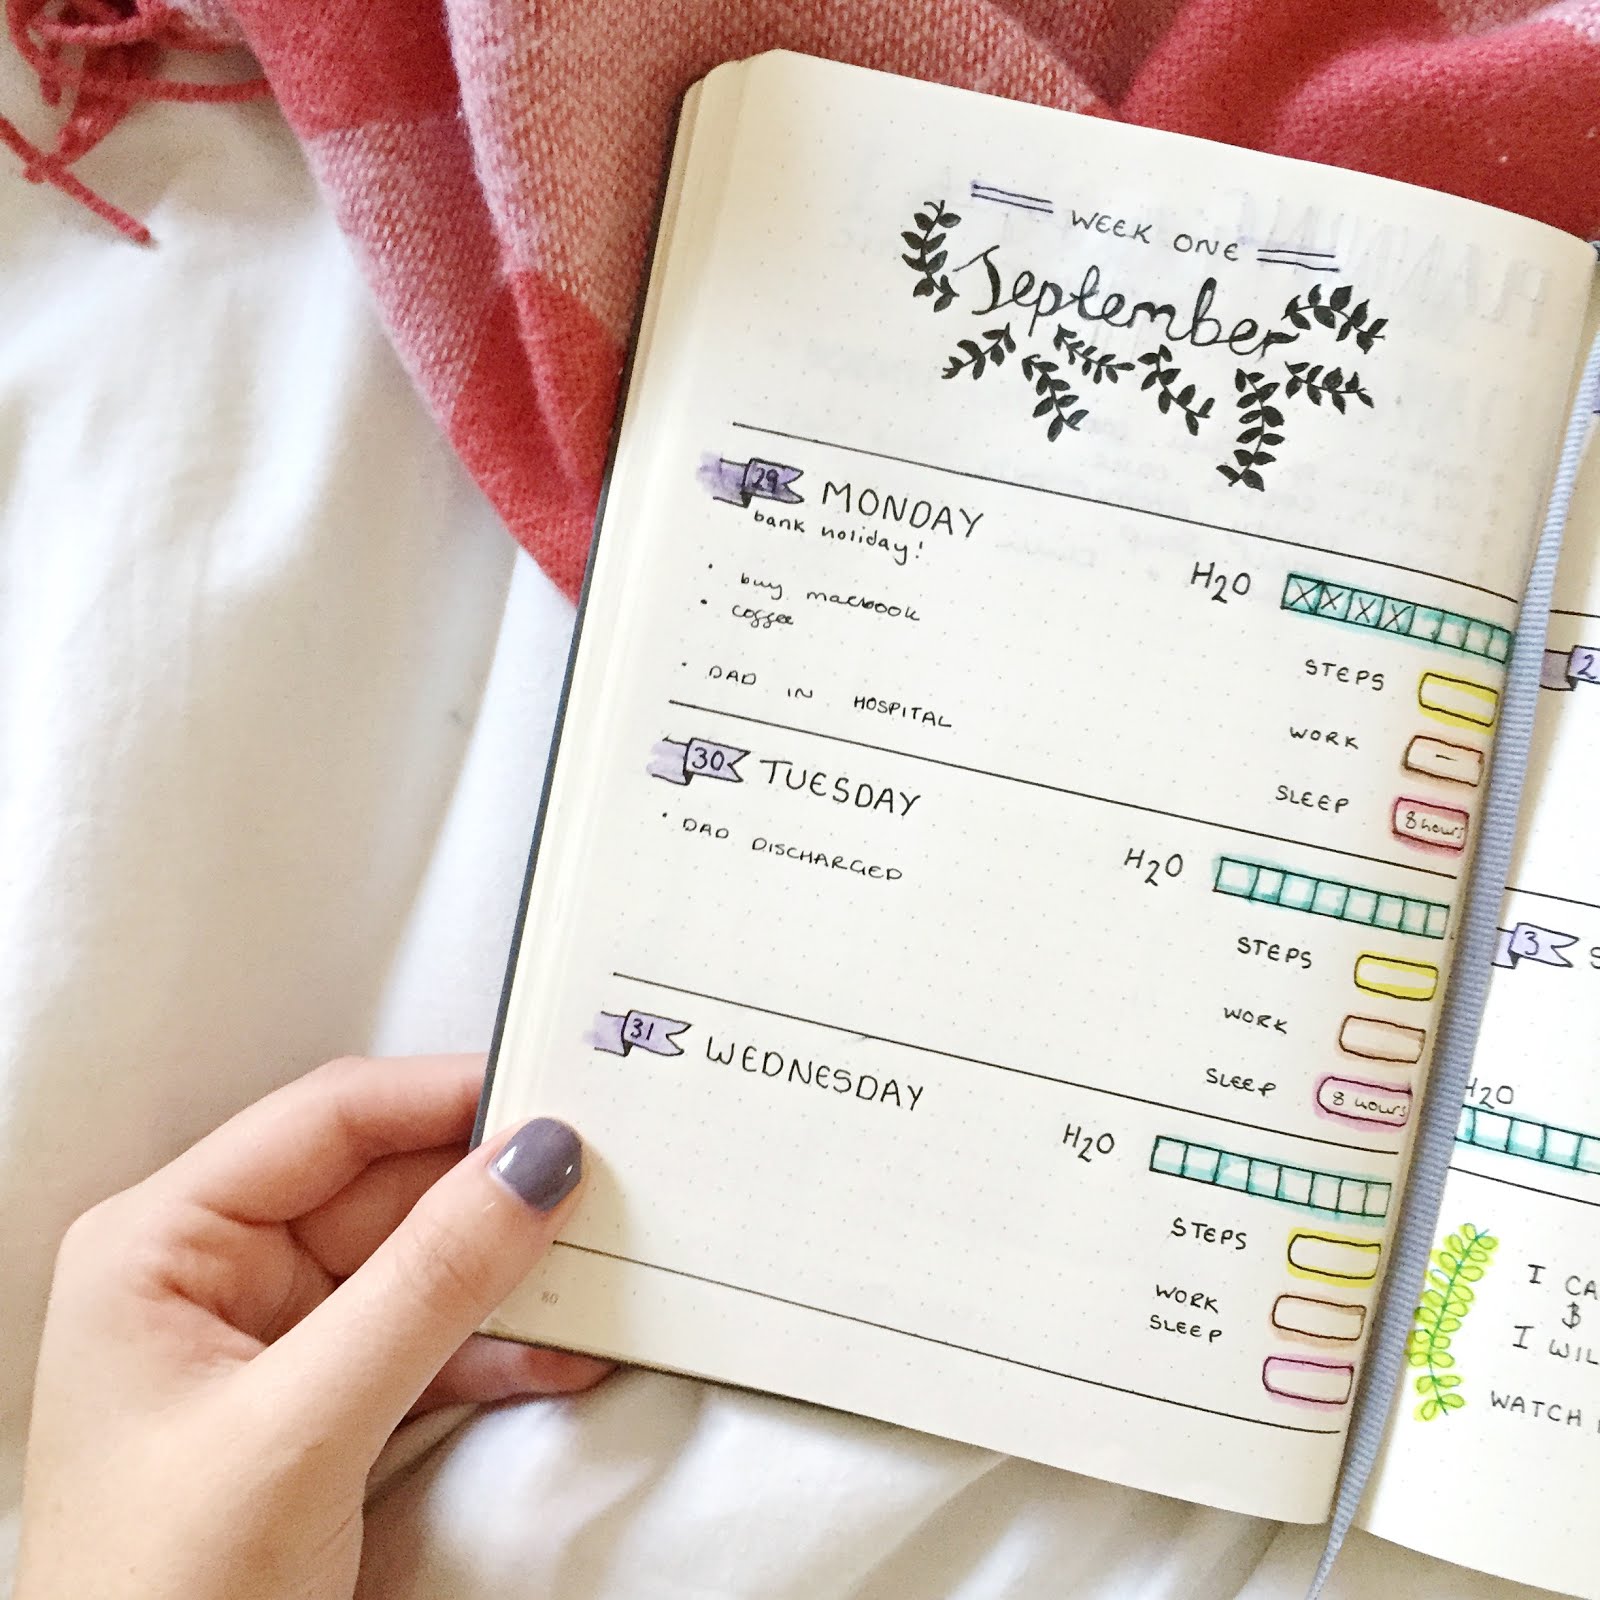 WEEK ONE
September
29 MONDAY
bank holiday!
• buy macbook
• coffee
• DAD IN HOSPITAL
H2O
STEPS
WORK -
SLEEP 8 hours
30 TUESDAY
• DAD DISCHARGED
H2O
STEPS
WORK
SLEEP 8 hours
31 WEDNESDAY
H2O
STEPS
WORK
SLEEP
80
2
3 S
H2O
I CA
$
I WIL
WATCH